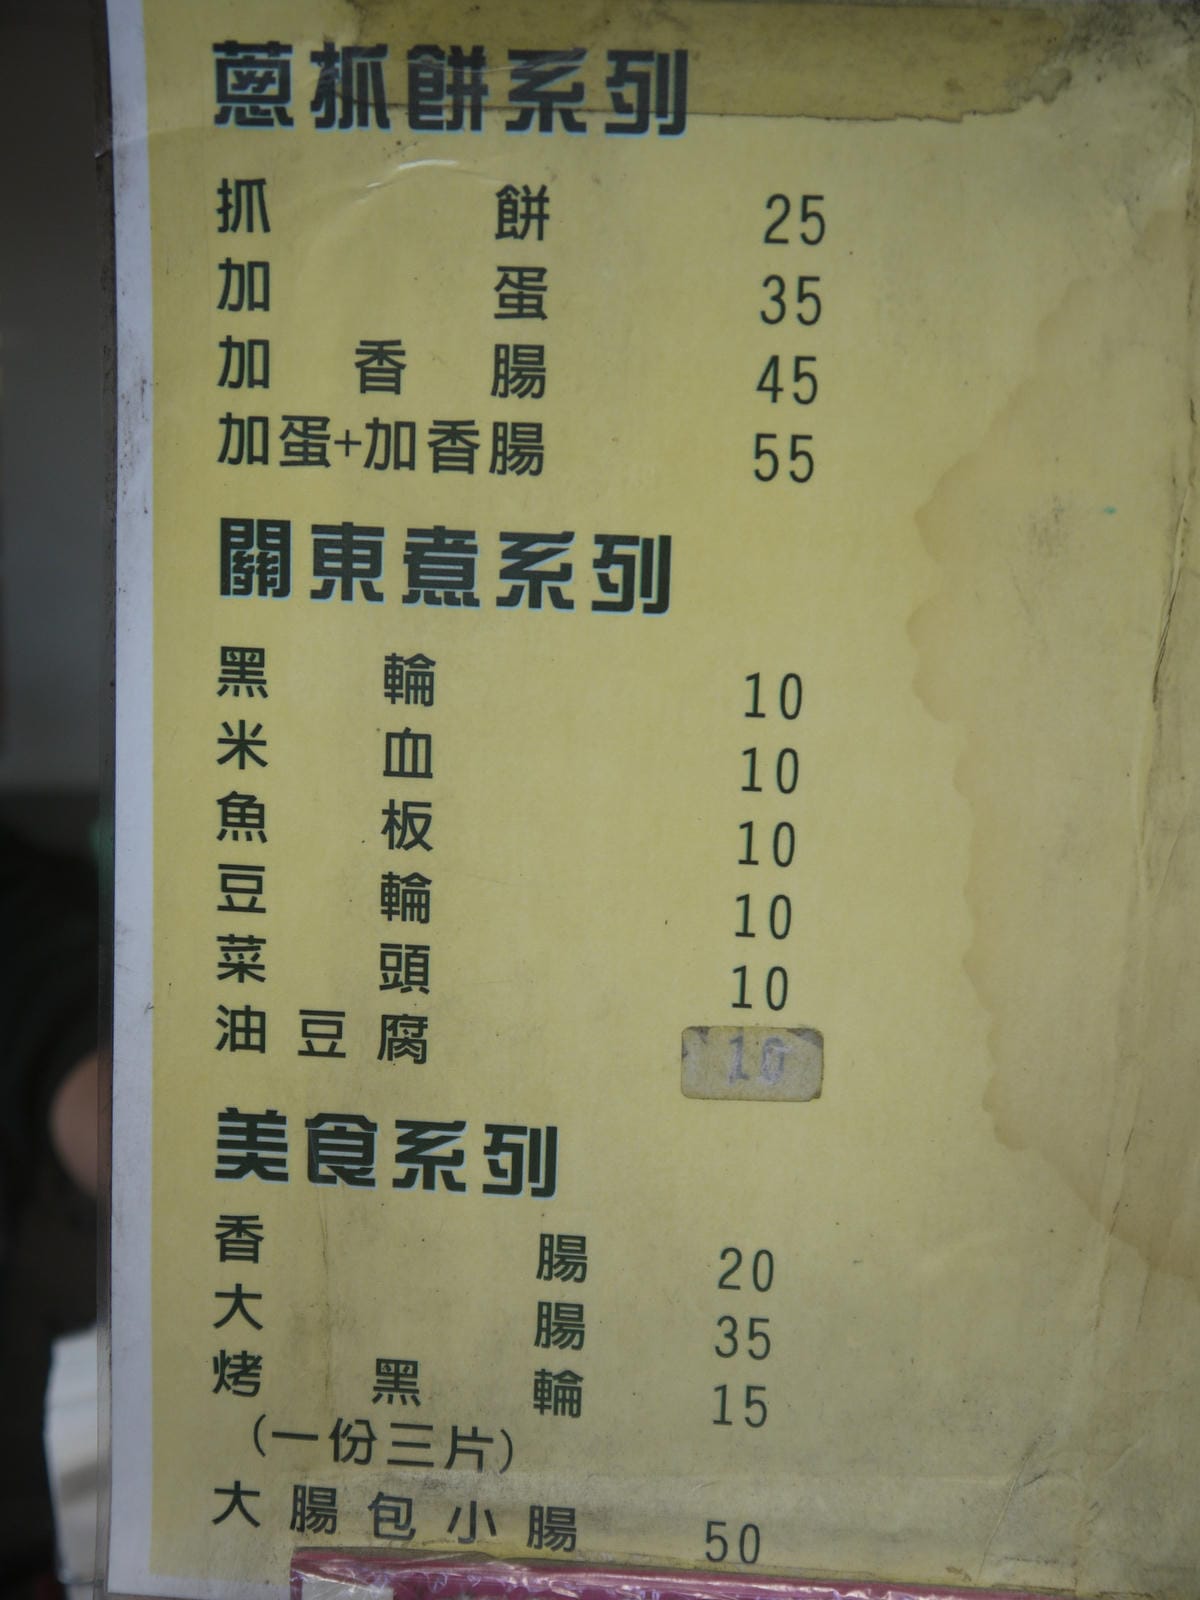 蔥抓餅系列
抓餅 25
加蛋 35
加香腸 45
加蛋+加香腸 55
關東煮系列
黑輪 10
米血 10
魚板 10
豆輪 10
菜頭 10
油豆腐 10
美食系列
香腸 20
大腸 35
烤黑輪 15
(一份三片)
大腸包小腸 50